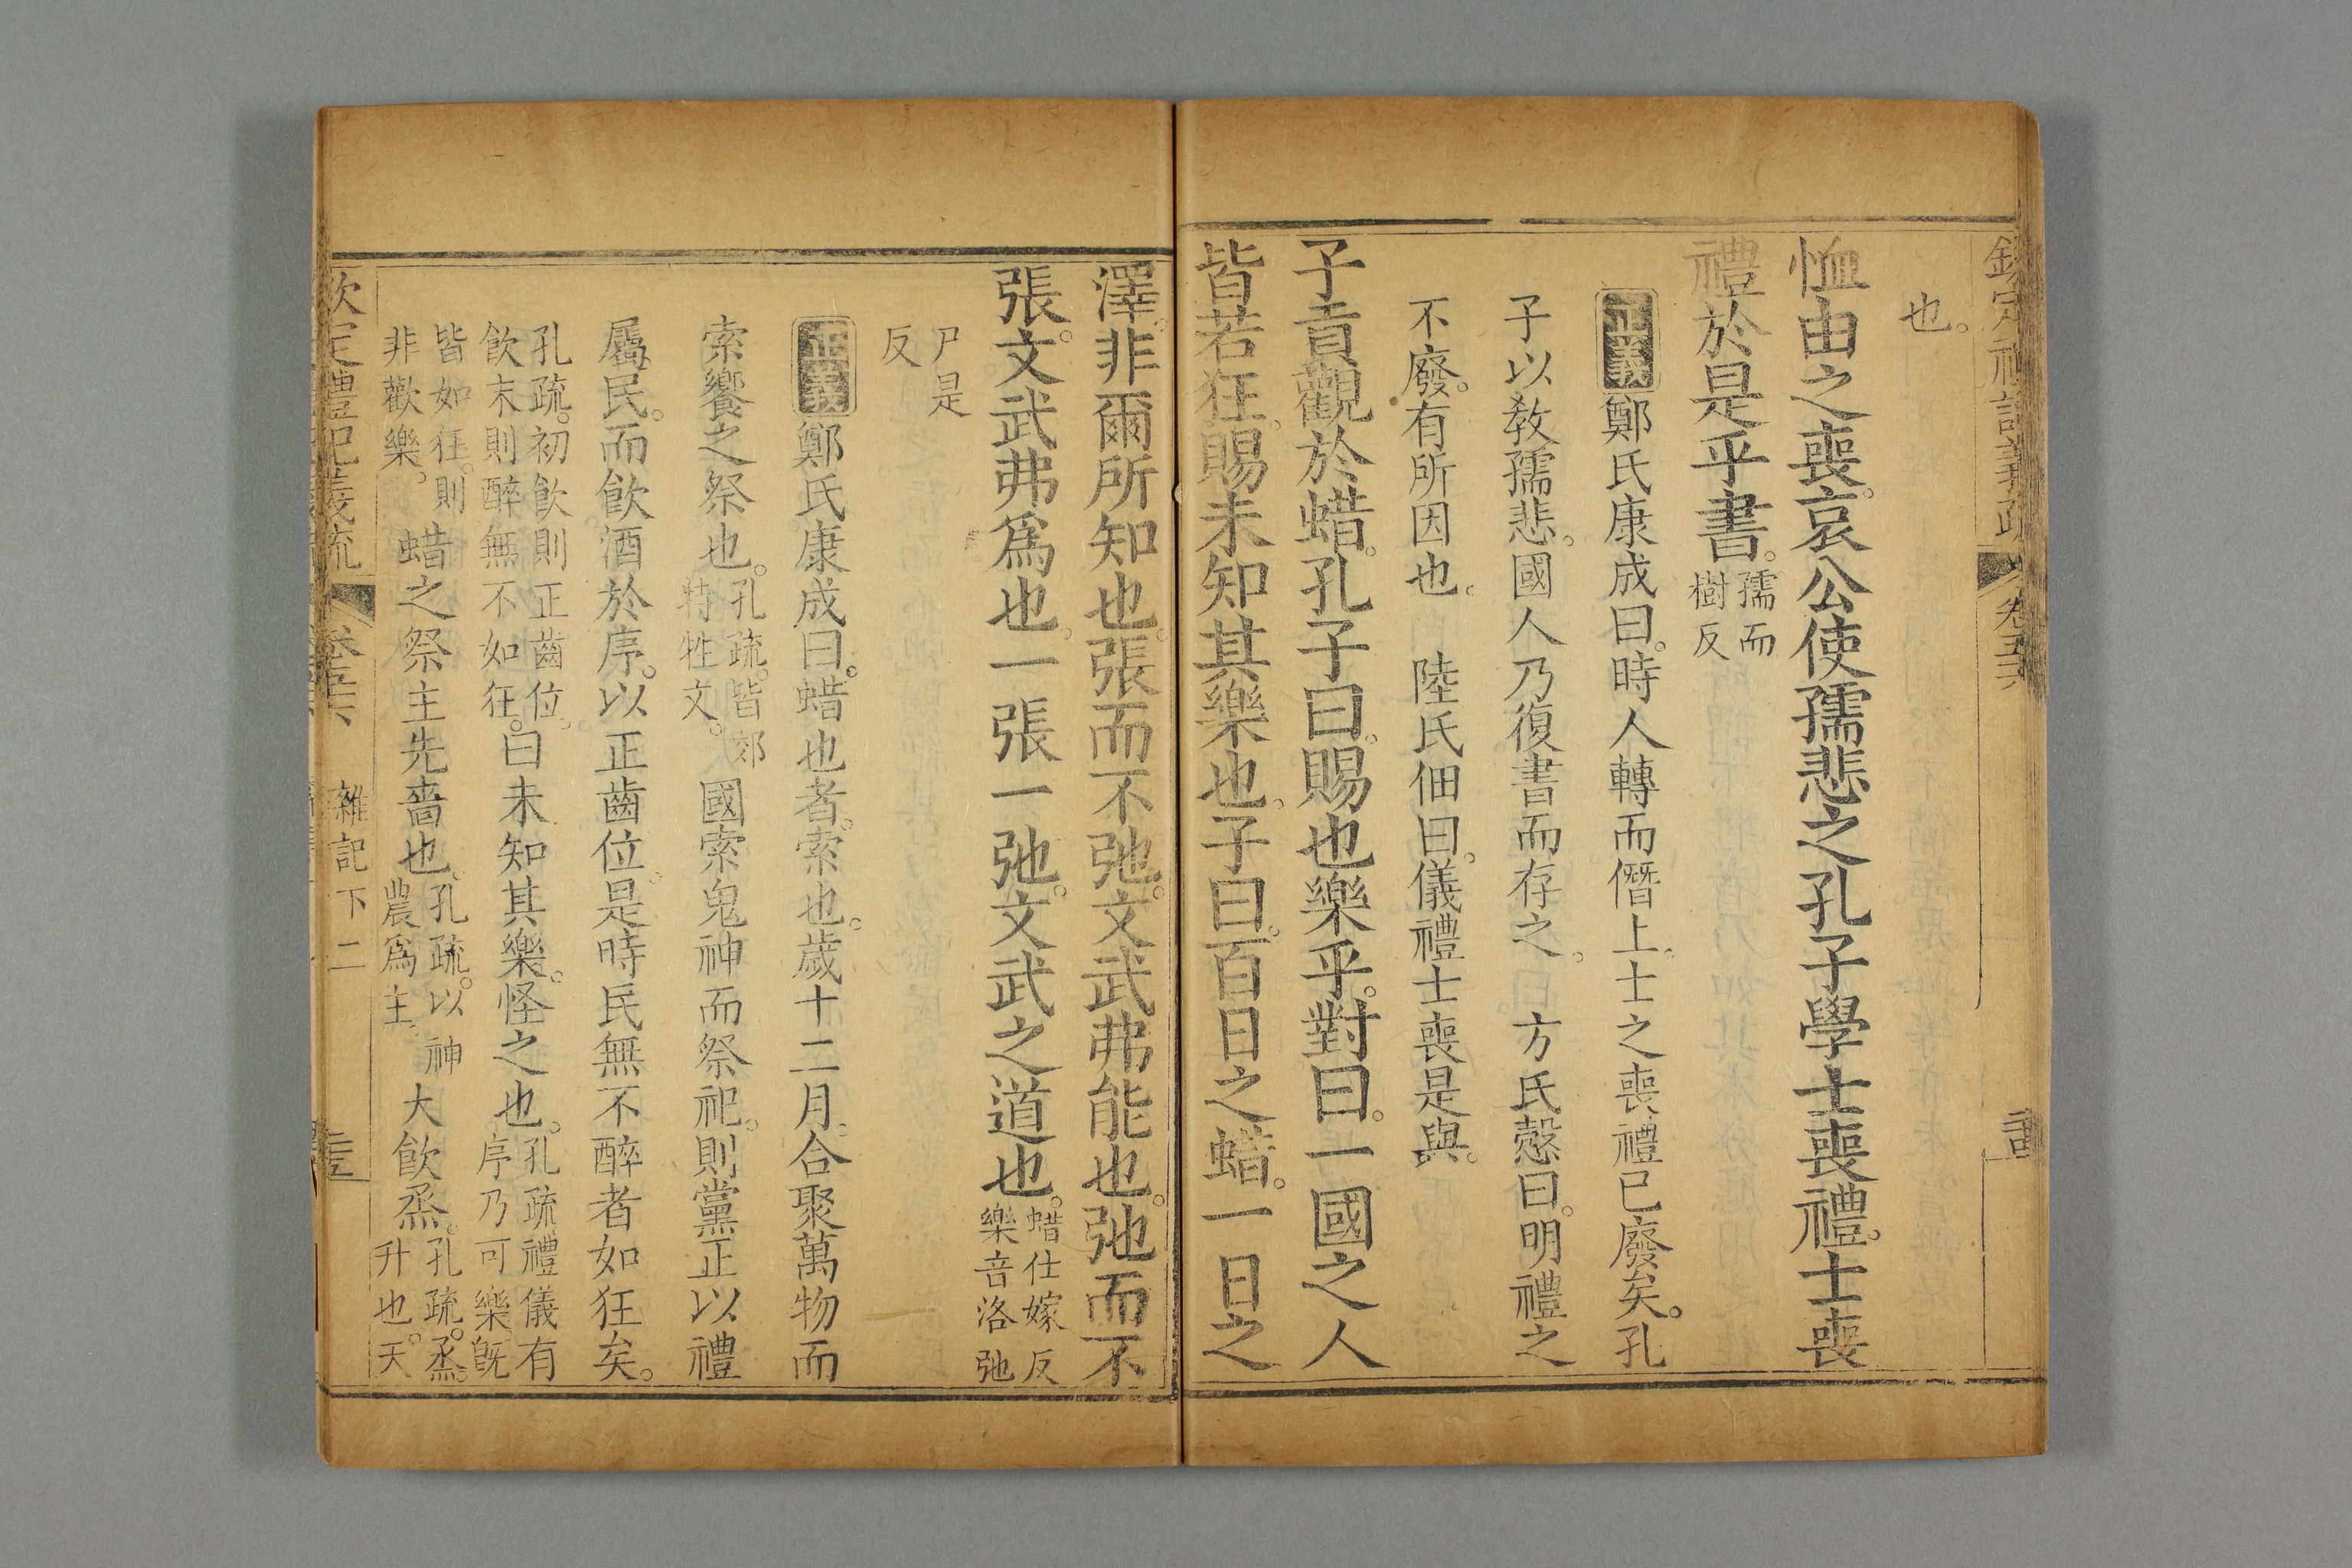 欽定禮記義疏 卷五六
也。
恤由之喪。哀公使孺悲之孔子學士喪禮。士喪
禮於是乎書。孺而樹反
正義鄭氏康成曰。時人轉而僭上。士之喪禮已廢矣。孔
子以敎孺悲。國人乃復書而存之。 方氏慤曰。明禮之
不廢。有所因也。 陸氏佃曰。儀禮士喪是與。
子貢觀於蜡。孔子曰。賜也樂乎。對曰。一國之人
皆若狂。賜未知其樂也。子曰。百日之蜡。一日之
澤。非爾所知也。張而不弛。文武弗能也。弛而不
張。文武弗爲也。一張一弛。文武之道也。蜡仕嫁反樂音洛弛
尸是反
正義鄭氏康成曰。蜡也者。索也。歲十二月。合聚萬物而
索饗之祭也。孔疏。皆郊特牲文。國索鬼神而祭祀。則黨正以禮
屬民。而飮酒於序。以正齒位。是時民無不醉者如狂矣。
孔疏。初飮則正齒位。飮末則醉無不如狂。曰未知其樂。怪之也。孔疏禮儀有序乃可樂旣
皆如狂。則非歡樂。蜡之祭主先嗇也。孔疏。以神農爲主。大飮烝。孔疏。烝。升也。天
欽定禮記義疏 卷五六 雜記下二